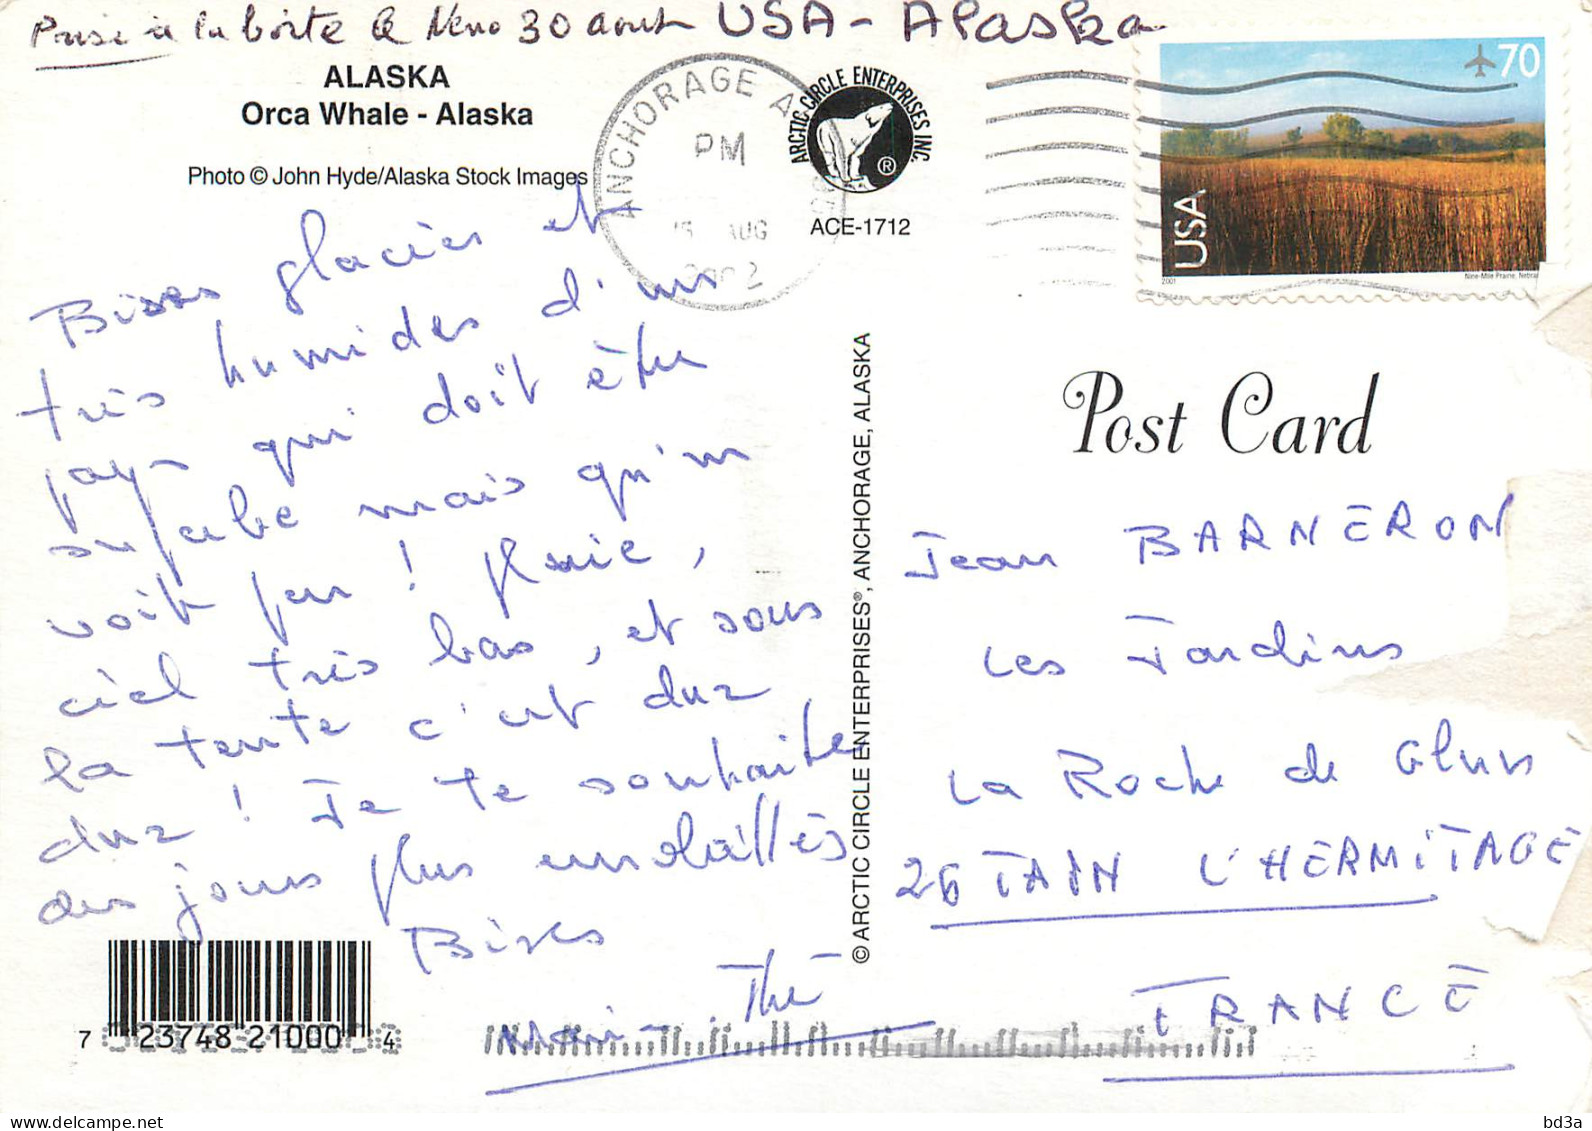 Prise à la boite le 30 aout USA - Alaska
ALASKA
Orca Whale - Alaska
Photo © John Hyde/Alaska Stock Images
ANCHORAGE A
PM
AUG
2002
ARCTIC CIRCLE ENTERPRISES INC.
®
ACE-1712
70
USA
2001
Nine-Mile Prairie, Nebra
Bises glacées et
très humides d'un
pays qui doit être
superbe mais qu'on
voit peu ! Pluie,
ciel très bas, et sous
la tente c'est dur
dur ! Je te souhaite
des jours plus ensoleillés
Bises
Marie-Thé
© ARCTIC CIRCLE ENTERPRISES®, ANCHORAGE, ALASKA
Post Card
Jean BARNERON
Les Jardins
La Roche de Glun
26 TAIN L'HERMITAGE
FRANCE
7 23748 21000 4
bd3a